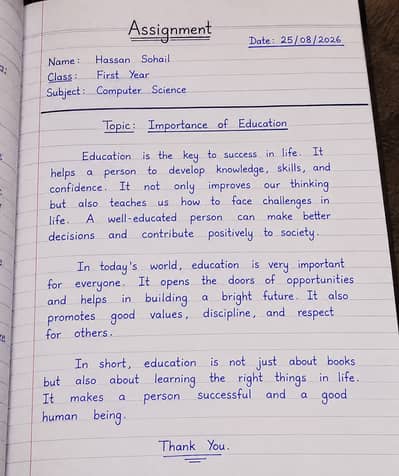 Assignment
Date: 25/08/2026
Name: Hassan Sohail
Class: First Year
Subject: Computer Science
Topic: Importance of Education
Education is the key to success in life. It
helps a person to develop knowledge, skills, and
confidence. It not only improves our thinking
but also teaches us how to face challenges in
life. A well-educated person can make better
decisions and contribute positively to society.
In today's world, education is very important
for everyone. It opens the doors of opportunities
and helps in building a bright future. It also
promotes good values, discipline, and respect
for others.
In short, education is not just about books
but also about learning the right things in life.
It makes a person successful and a good
human being.
Thank You.